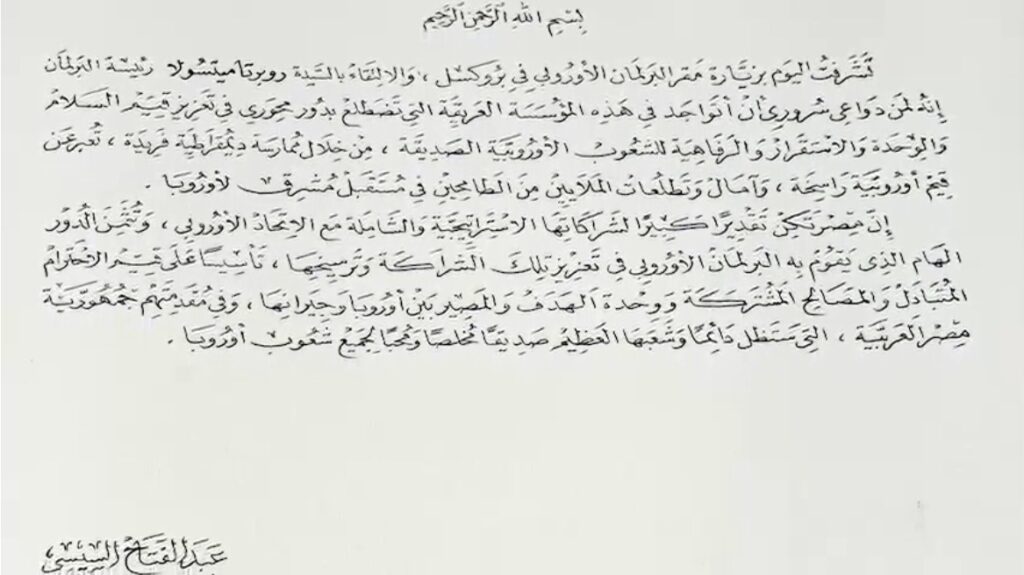 بِسْمِ اللهِ الرَّحْمَنِ الرَّحِيمِ
تشرفت اليوم بزيارة مقر البرلمان الأوروبي في بروكسل ، والالتقاء بالسيدة روبرتا ميتسولا رئيسة البرلمان
إنه لمن دواعي سروري أن أتواجد في هذه المؤسسة العريقة التي تضطلع بدور محوري في تعزيز قيم السلام
والوحدة والاستقرار والرفاهية للشعوب الأوروبية الصديقة ، من خلال ممارسة ديمقراطية فريدة ، تعبر عن
قيم أوروبية راسخة ، وآمال وتطلعات الملايين من الطامحين في مستقبل مشرق لأوروبا .
إن مصر تكن تقديرًا كبيرًا لشراكاتها الاستراتيجية والشاملة مع الاتحاد الأوروبي ، وتثمن الدور
الهام الذى يقوم به البرلمان الأوروبي في تعزيز تلك الشراكة وترسيخها ، تأسيسًا على قيم الاحترام
المتبادل والمصالح المشتركة ووحدة الهدف والمصير بين أوروبا وجيرانها ، وفي مقدمتهم جمهورية
مصر العربية ، التي ستظل دائمًا وشعبها العظيم صديقًا مخلصًا ومحبًا لجميع شعوب أوروبا .
عبد الفتاح السيسي